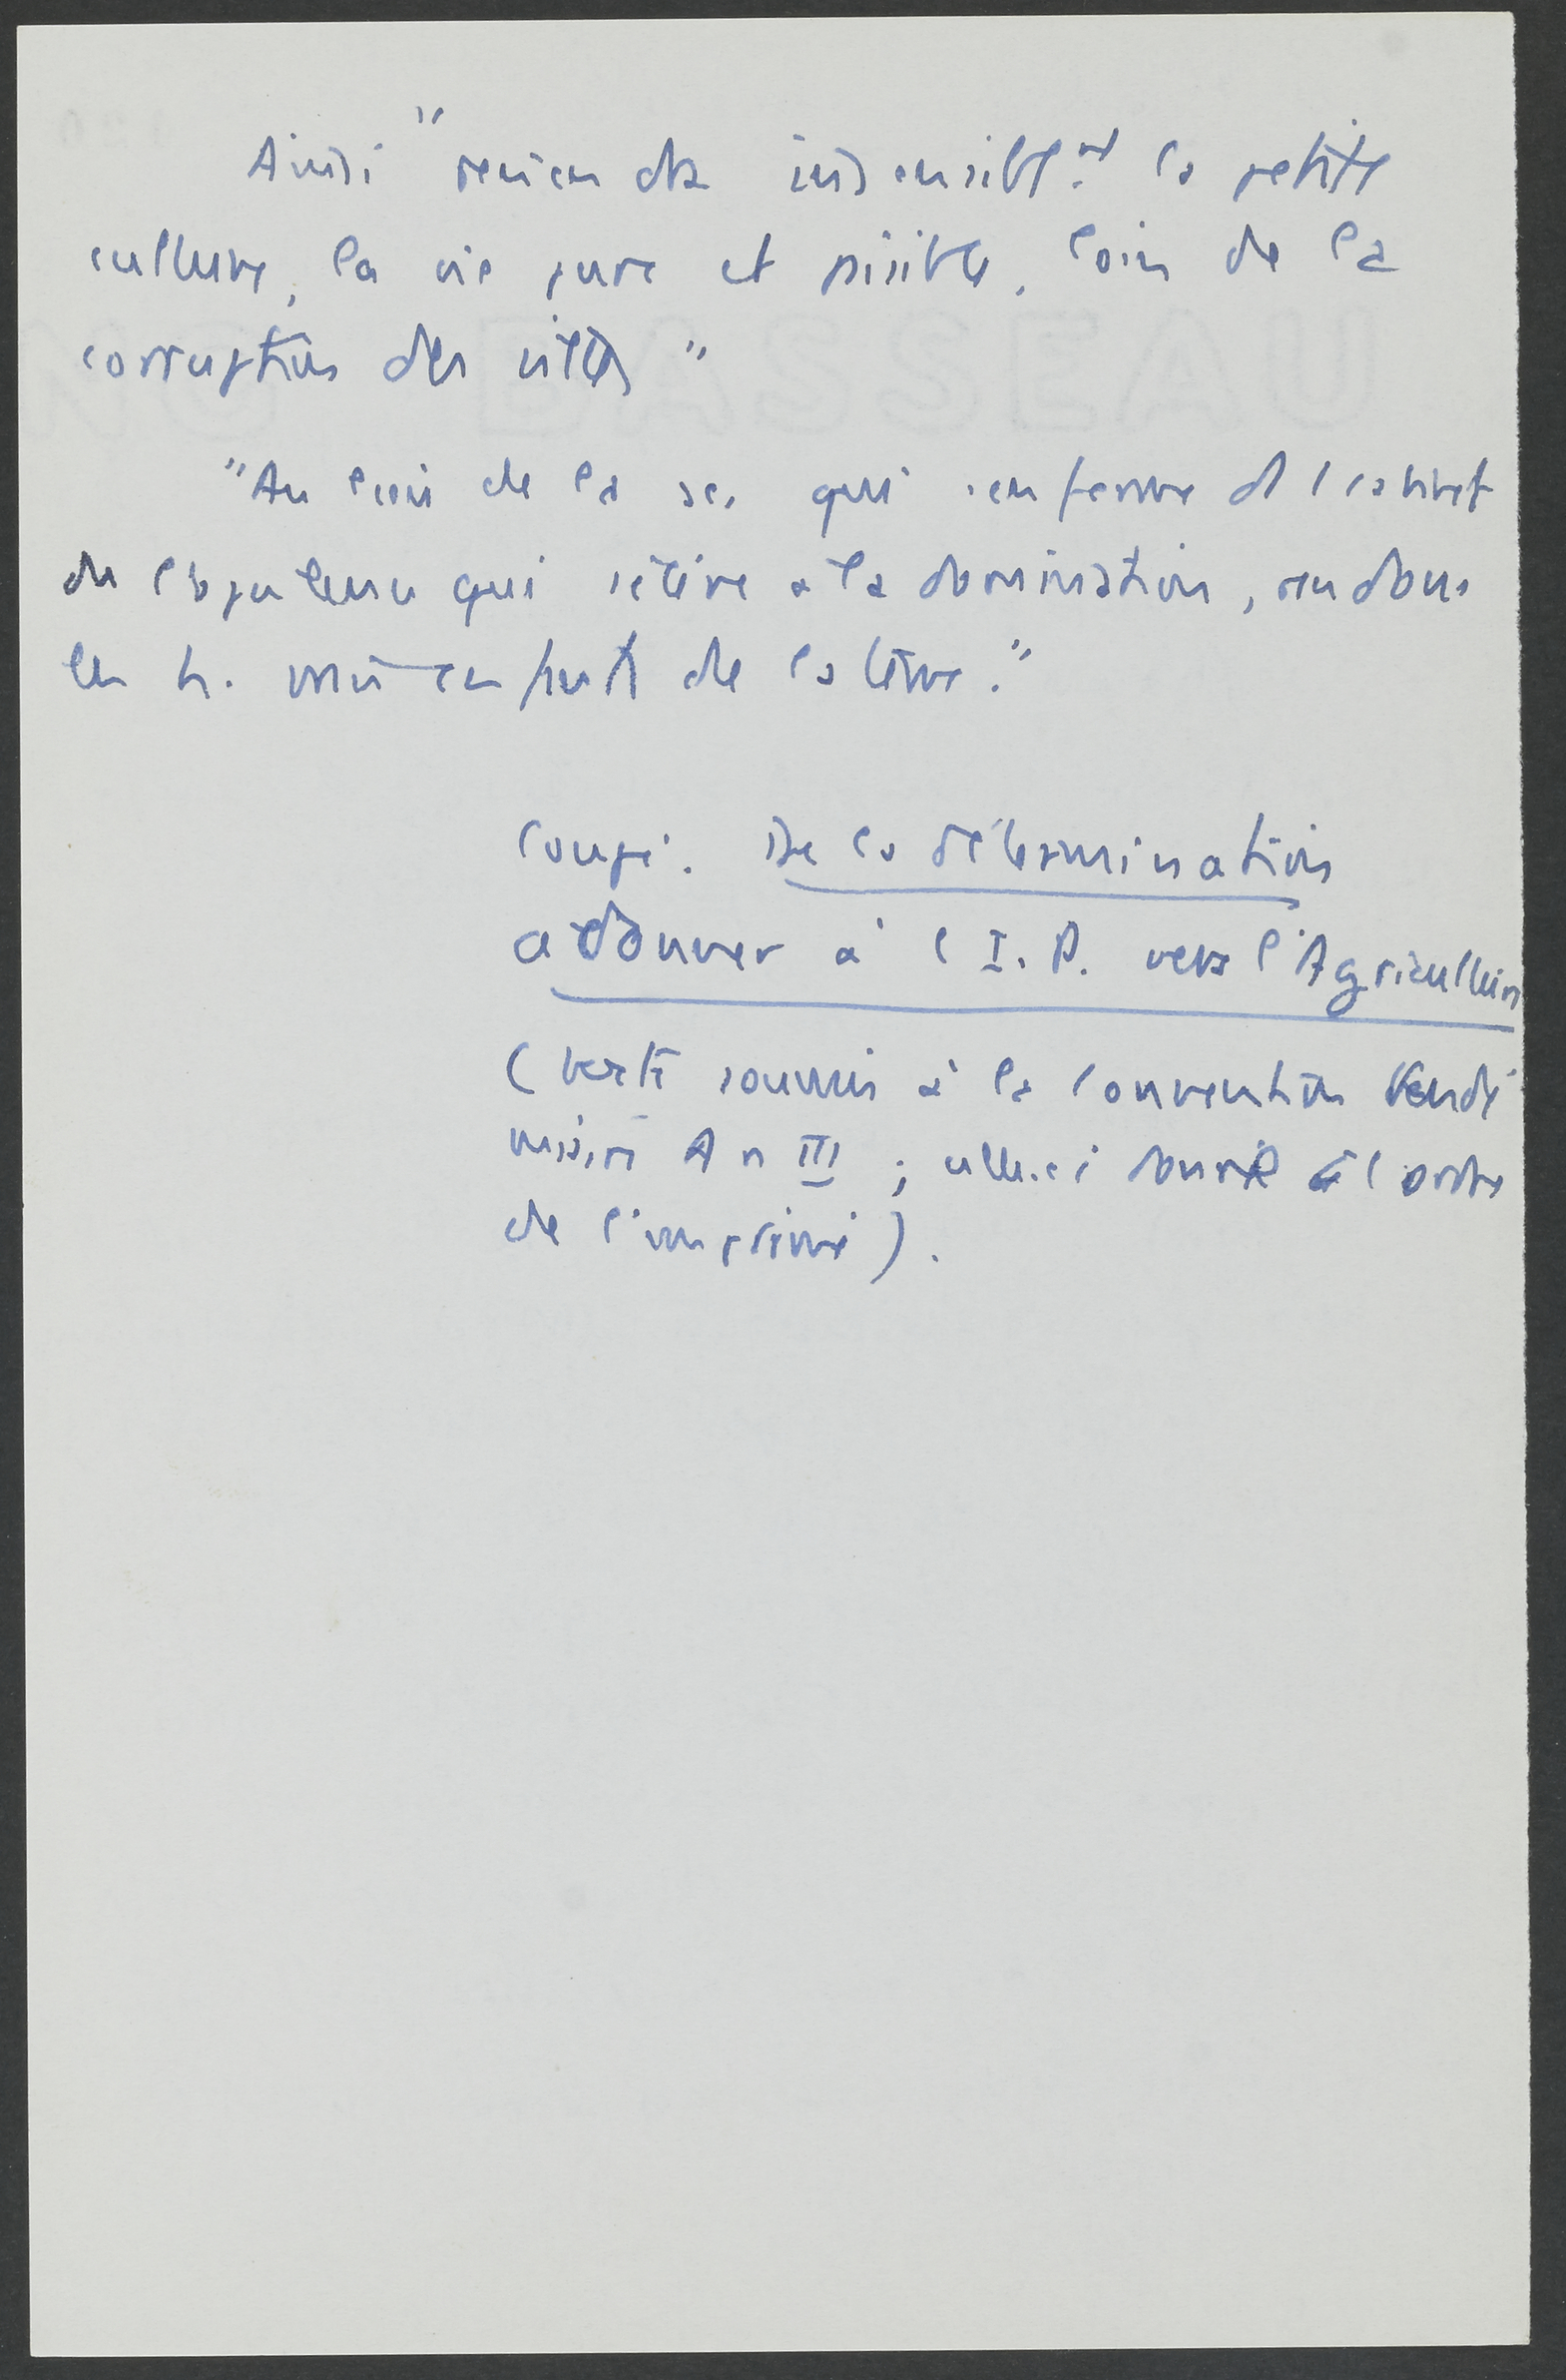 Ainsi "reviendra insensiblt la petite
culture, la vie pure et paisible, loin de la
corruption des villes"
"Au lieu de la sc. qui renferme ds l cabinet
de l'opulence qui s'élève à la domination, rendons
les h. enfants de la terre."
Coupé. De la détermination
à donner à l I.P. vers l'Agriculture
(texte soumis à la Convention Vendé
miaire An III ; celle-ci l'ordre
de l'imprimé).